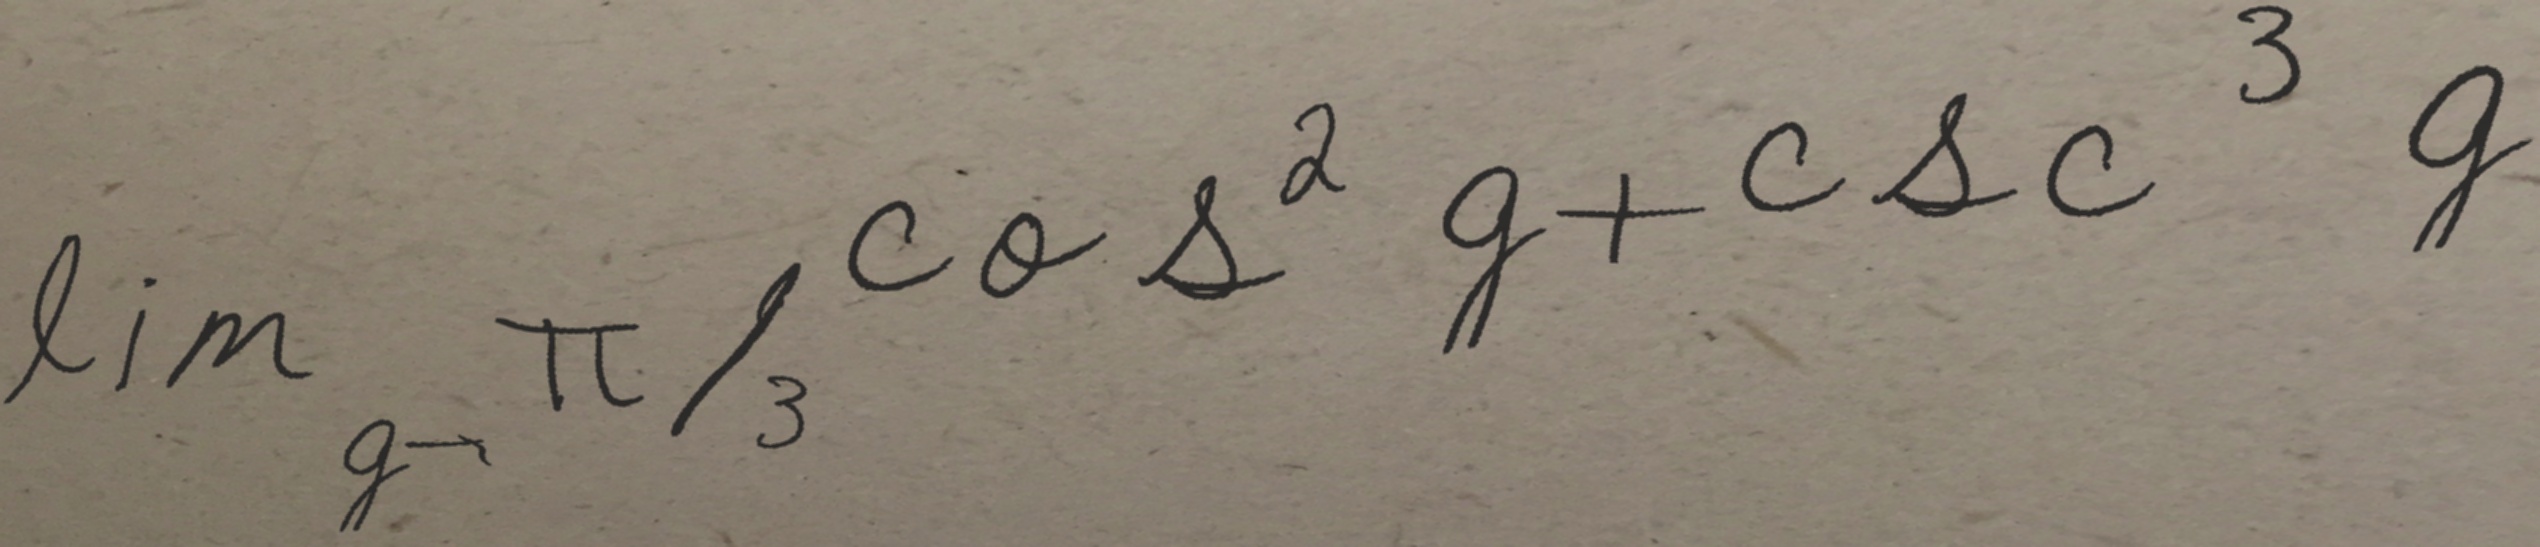 lim g→π/3 cos² g + csc³ g